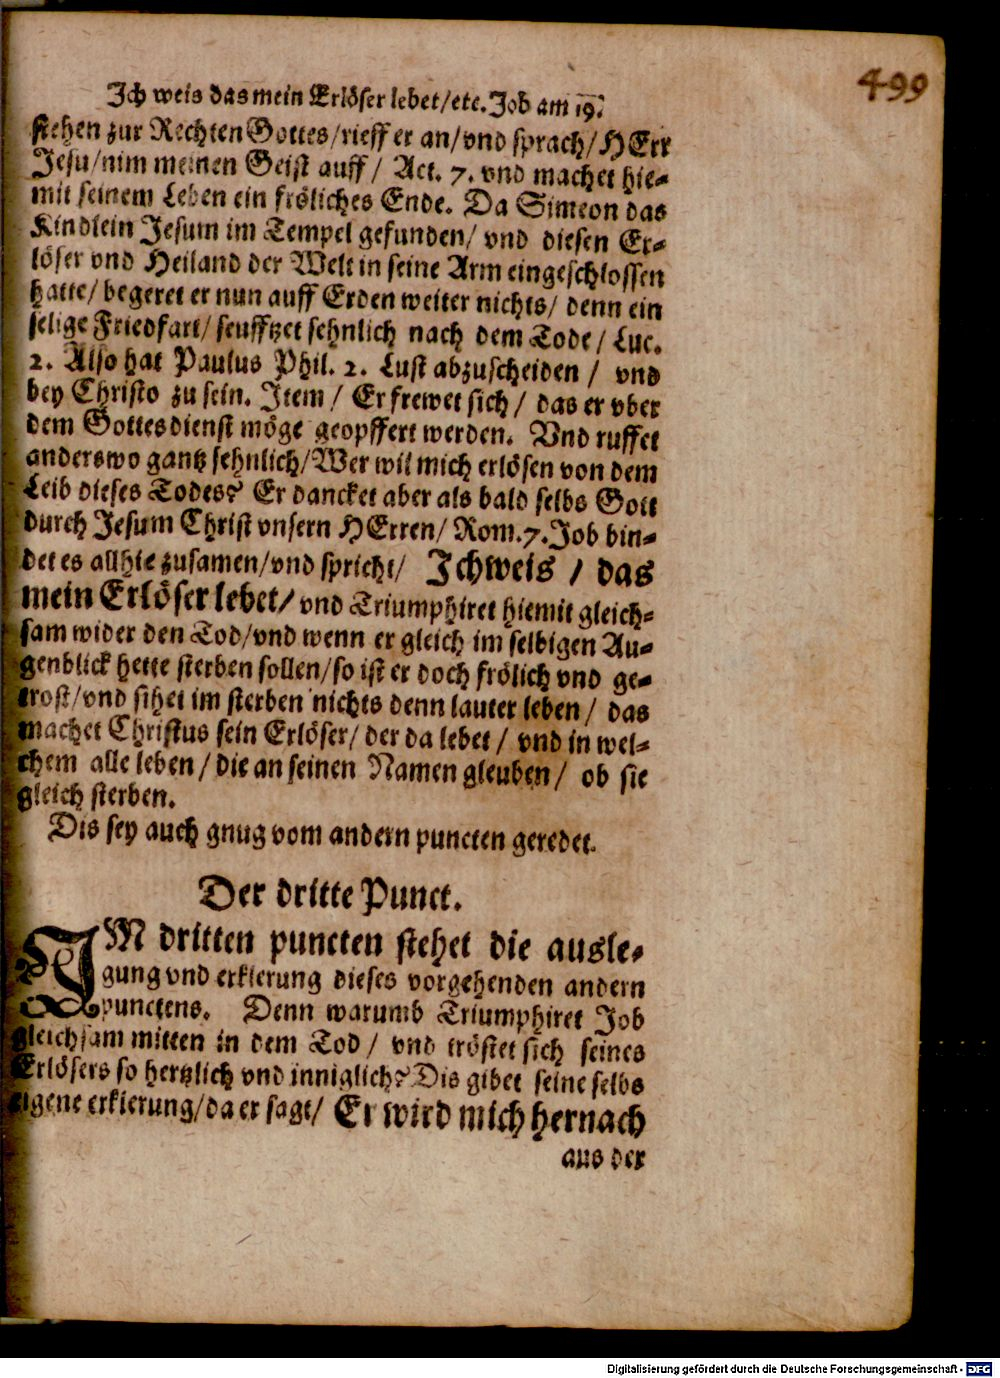 499
Ich weis das mein Erlöser lebet/etc. Job am 19.
stehen zur Rechten Gottes/rieff er an/vnd sprach/HErr
Jesu/nim meinen Geist auff/ Act. 7. vnd machet hie-
mit seinem Leben ein fröliches Ende. Da Simeon das
Kindlein Jesum im Tempel gefunden/ vnd diesen Er-
löser vnd Heiland der Welt in seine Arm eingeschlossen
hatte/ begeret er nun auff Erden weiter nichts/ denn ein
selige Friedfart/ seufftzet sehnlich nach dem Tode/ Luc.
2. Also hat Paulus Phil. 2. Lust abzuscheiden / vnd
bey Christo zu sein. Item / Er frewet sich / das er vber
dem Gottesdienst möge geopffert werden. Vnd ruffet
anderswo gantz sehnlich/Wer wil mich erlösen von dem
Leib dieses Todes? Er dancket aber als bald selbs Gott
durch Jesum Christ vnsern HErren/ Rom.7. Job bin-
det es allhie zusamen/vnd spricht/ Ich weis / das
mein Erlöser lebet/ vnd Triumphiret hiemit gleich-
sam wider den Tod/vnd wenn er gleich im selbigen Au-
genblick hette sterben sollen/so ist er doch frölich vnd ge-
trost/vnd sihet im sterben nichts denn lauter leben / das
machet Christus sein Erlöser/ der da lebet / vnd in wel-
chem alle leben / die an seinen Namen gleuben / ob sie
gleich sterben.
Dis sey auch gnug vom andern puncten geredet.
Der dritte Punct.
IM dritten puncten stehet die ausle-
gung vnd erklerung dieses vorgehenden andern
punctens. Denn warumb Triumphiret Job
gleichsam mitten in dem Tod / vnd tröstet sich seines
Erlösers so hertzlich vnd inniglich? Dis gibet seine selbs
eigene erklerung/da er sagt/ Er wird mich hernach
aus der
Digitalisierung gefördert durch die Deutsche Forschungsgemeinschaft - DFG